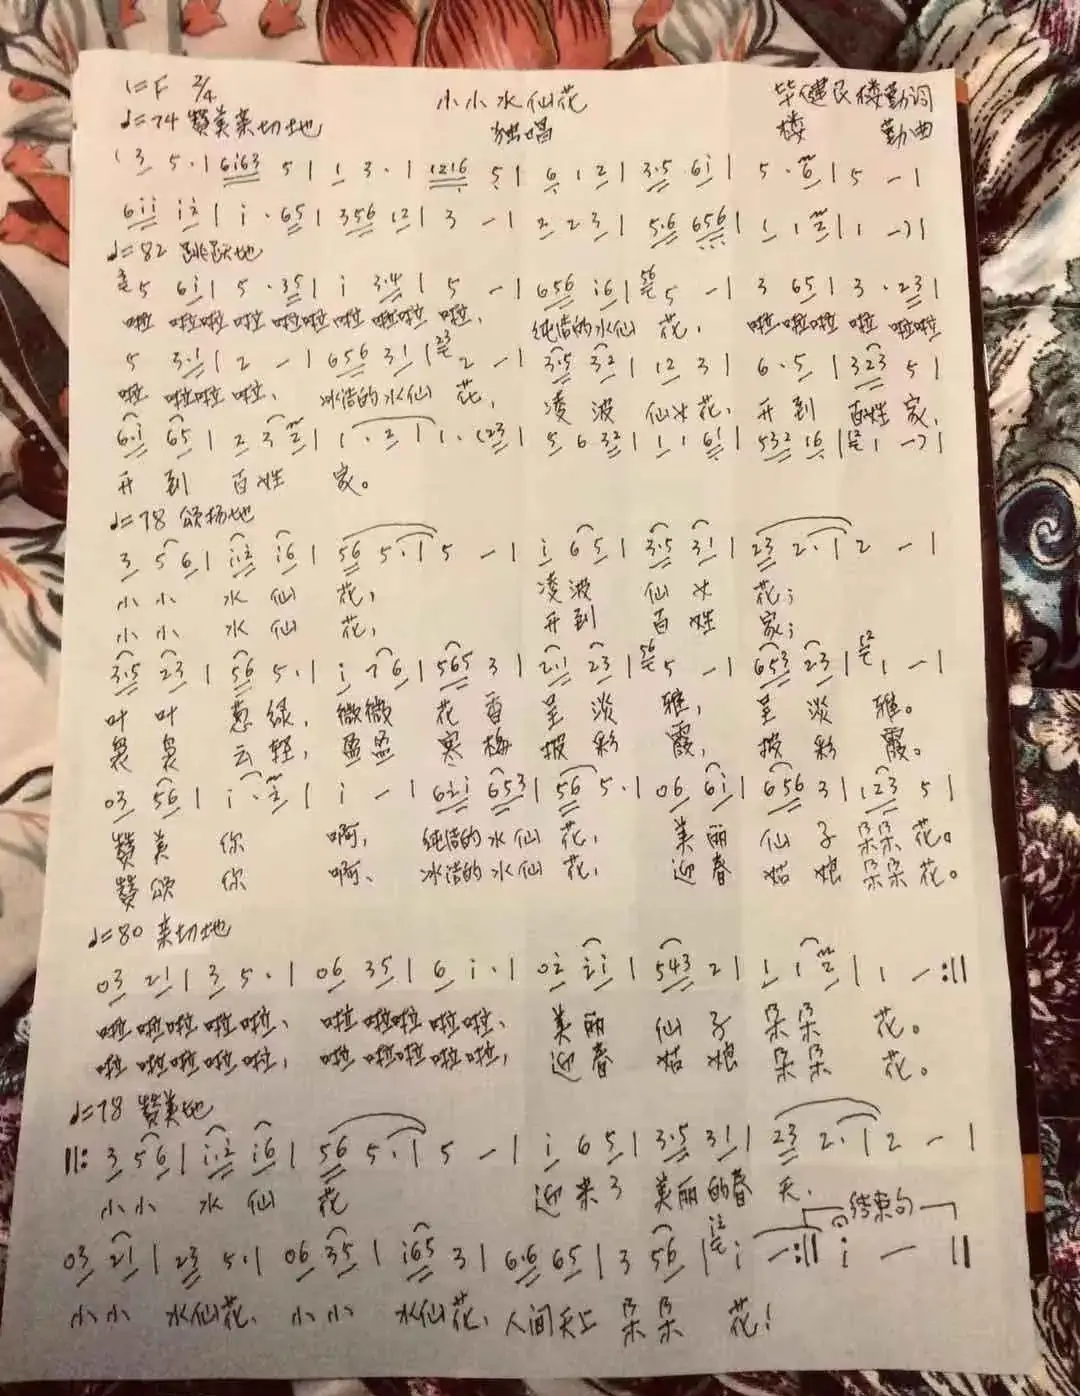 1=F 2/4
小小水仙花
毕健民 楼勤词
♩=74 赞美亲切地
独唱
楼 勤曲
(3 5·| 6i63 5 | 1 3·| 1216 5 | 6 1 2 | 3·5 6i | 5·6 | 5 — |
6ii i2 | i·65 | 356 12 | 3 — | 2 2 3 | 5·6 656 | 1 1 2 | 1 —) |
♩=82 跳跃地
5 6i | 5·35 | i 3·4 | 5 — | 656 i6 | 5 — | 3 65 | 3·23 |
啦 啦啦 啦 啦啦 啦 啦啦 啦, 纯洁的水仙 花, 啦 啦啦 啦 啦啦
5 3·1 | 2 — | 656 31 | 2 — | 3·5 32 | 12 3 | 6·5 | 323 5 |
啦 啦啦 啦, 冰洁的水仙 花, 凌波 仙水花, 开到 百姓 家,
6·i 65 | 2 3 2 | 1·2 | 1·(23 | 5 6 32 | 1 1 61 | 532 16 | 1 —) |
开到 百姓 家。
♩=78 颂扬地
3 56 | i·2 i6 | 56 5· | 5 — | i 65 | 3·5 31 | 23 2· | 2 — |
小小 水仙 花, 凌波 仙水 花;
小小 水仙 花, 开到 百姓 家;
3·5 23 | 56 5· | i 76 | 565 3 | 2·1 23 | 5 — | 653 23 | 1 — |
叶叶 葱绿, 微微 花香 呈淡 雅, 呈淡 雅。
袅袅 云轻, 盈盈 寒梅 披彩 霞, 披彩 霞。
03 56 | i·2 | i — | 62i 653 | 56 5· | 06 6i | 656 3 | 123 5 |
赞美 你 啊, 纯洁的水仙 花, 美丽 仙子 朵朵花。
赞颂 你 啊、 冰洁的水仙 花, 迎春 姑娘 朵朵花。
♩=80 亲切地
03 21 | 3 5· | 06 35 | 6 i· | 02 2i | 543 2 | 1 1 2 | 1 — :||
啦啦啦啦啦、 啦啦啦啦啦、 美丽 仙子 朵朵 花。
啦啦啦啦啦, 啦啦啦啦啦, 迎春 姑娘 朵朵 花。
♩=78 赞美地
||: 3 56 | i·2 i6 | 56 5· | 5 — | i 65 | 3·5 31 | 23 2· | 2 — |
小小 水仙 花 迎来了 美丽的春 天,
结束句
03 21 | 23 5· | 06 35 | i65 3 | 6·6 65 | 3 56 | i — :|| i — ||
小小 水仙花、小小 水仙花,人间天上 朵朵 花!